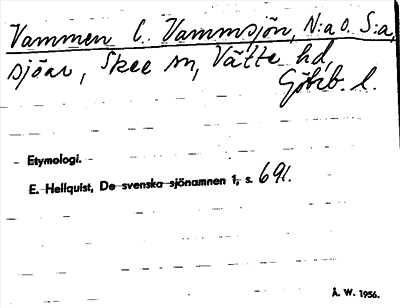 Vammen l. Vammsjön, N:a o. S:a,
sjöar, Skee sn, Vätte hd,
Göteb. l.
Etymologi.
E. Hellquist, De svenska sjönamnen 1, s. 691.
Å. W. 1956.